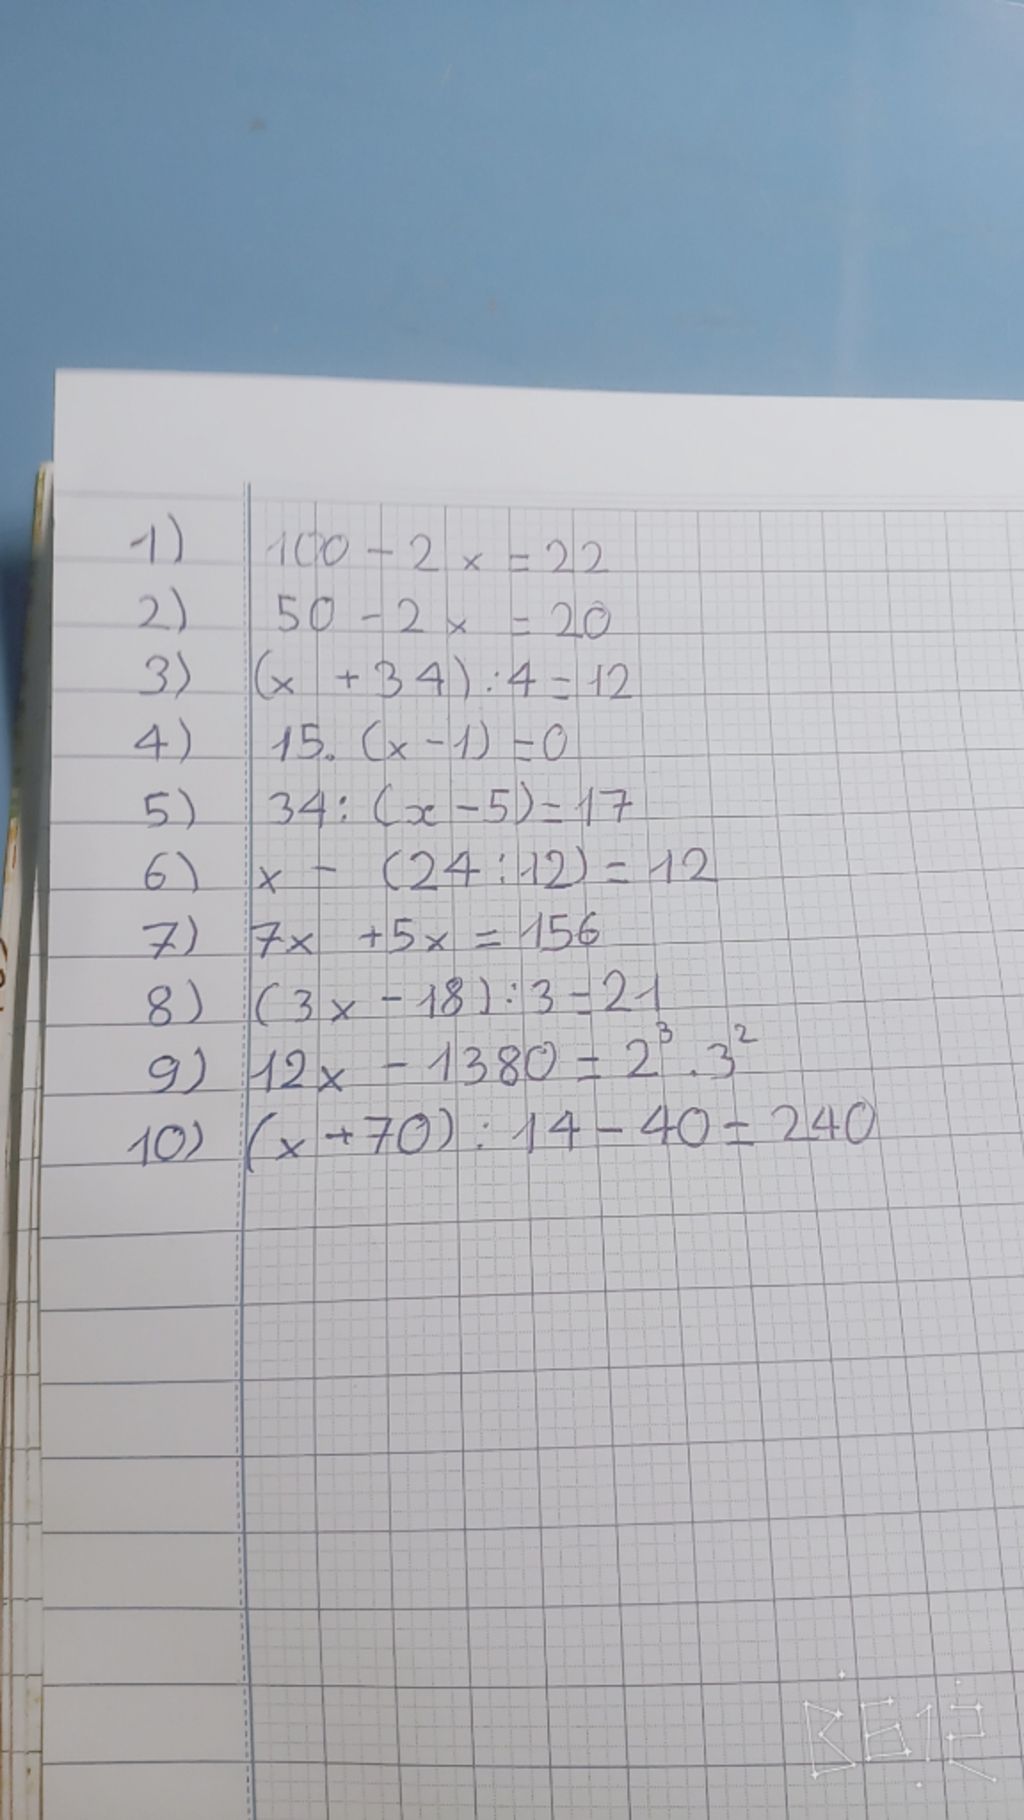 1) 100 - 2x = 22
2) 50 - 2x = 20
3) (x + 34) : 4 = 12
4) 15. (x - 1) = 0
5) 34 : (x - 5) = 17
6) x - (24 : 12) = 12
7) 7x + 5x = 156
8) (3x - 18) : 3 = 21
9) 12x - 1380 = 2³ . 3²
10) (x + 70) : 14 - 40 = 240
B612